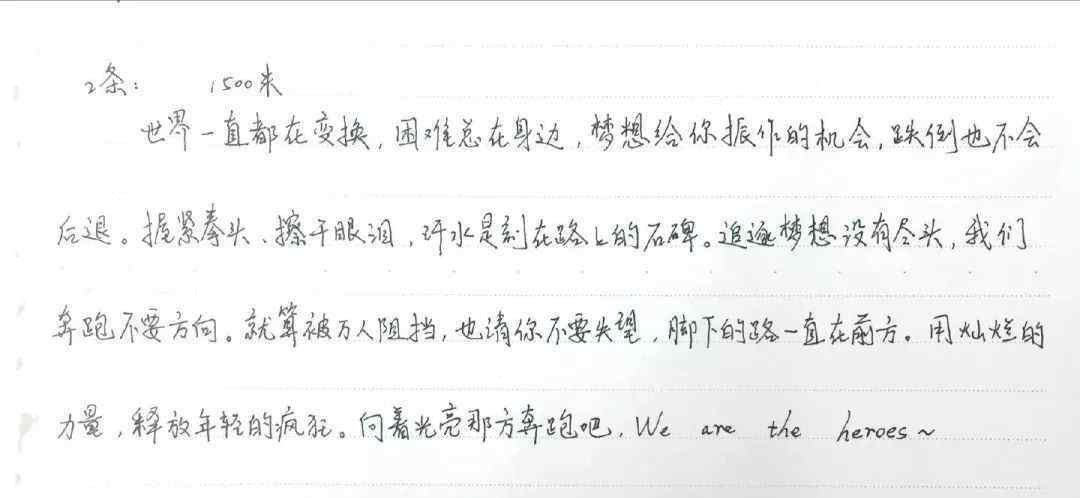 2条: 1500米
世界一直都在变换,困难总在身边,梦想给你振作的机会,跌倒也不会
后退。握紧拳头、擦干眼泪,汗水是刻在路上的石碑。追逐梦想没有尽头,我们
奔跑不要方向。就算被万人阻挡,也请你不要失望,脚下的路一直在前方。用灿烂的
力量,释放年轻的疯狂。向着光亮那方奔跑吧,We are the heroes~